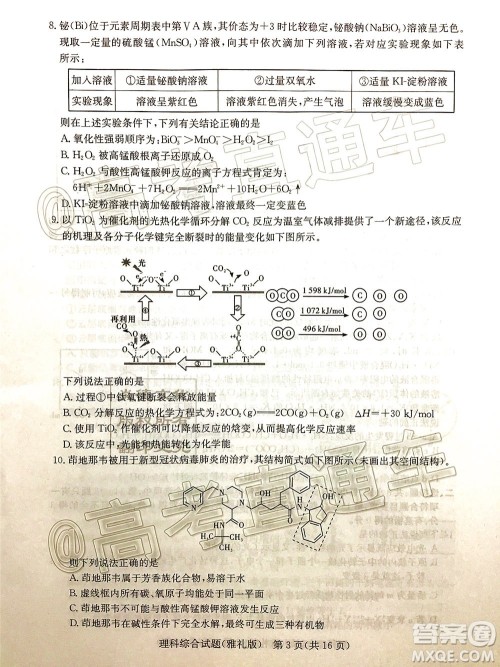 8.铋(Bi)位于元素周期表中第ⅤA族，其价态为＋3时比较稳定，铋酸钠(NaBiO₃)溶液呈无色。
现取一定量的硫酸锰(MnSO₄)溶液，向其中依次滴加下列溶液，若对应实验现象如下表
所示：
加入溶液 ①适量铋酸钠溶液 ②过量双氧水 ③适量KI-淀粉溶液
实验现象 溶液呈紫红色 溶液紫红色消失，产生气泡 溶液缓慢变成蓝色
则在上述实验条件下，下列有关结论正确的是
A.氧化性强弱顺序为：BiO₃⁻>MnO₄⁻>H₂O₂>I₂
B.H₂O₂被高锰酸根离子还原成O₂
C.H₂O₂与酸性高锰酸钾反应的离子方程式肯定为：
6H⁺＋2MnO₄⁻＋7H₂O₂══2Mn²⁺＋10H₂O＋6O₂↑
D.KI-淀粉溶液中滴加过量铋酸钠溶液，溶液最终一定变蓝色
9.以TiO₂为催化剂的光热化学循环分解CO₂反应为温室气体减排提供了一个新途径，该反应
的机理及各分子化学键完全断裂时的能量变化如下图所示。
光
CO₂
1 598 kJ/mol
1 072 kJ/mol
496 kJ/mol
①
②
③
④
再利用
CO
热
下列说法正确的是
A.过程①中钛氧键断裂会释放能量
B.CO₂分解反应的热化学方程式为：2CO₂(g)══2CO(g)＋O₂(g) ΔH=＋30 kJ/mol
C.使用TiO₂作催化剂可以降低反应的焓变，从而提高化学反应速率
D.该反应中，光能和热能转化为化学能
10.茚地那韦被用于新型冠状病毒肺炎的治疗，其结构简式如下图所示(未画出其空间结构)。
则下列说法正确的是
A.茚地那韦属于芳香族化合物，易溶于水
B.虚线框内的碳、氧原子均处于同一平面
C.茚地那韦可与酸性高锰酸钾溶液发生反应
D.茚地那韦在碱性条件下完全水解，最终可生成三种有机物
理科综合试题(雅礼版) 第3页(共16页)
高考直通车
高考直通车
版权所有
翻印必究
答案圈